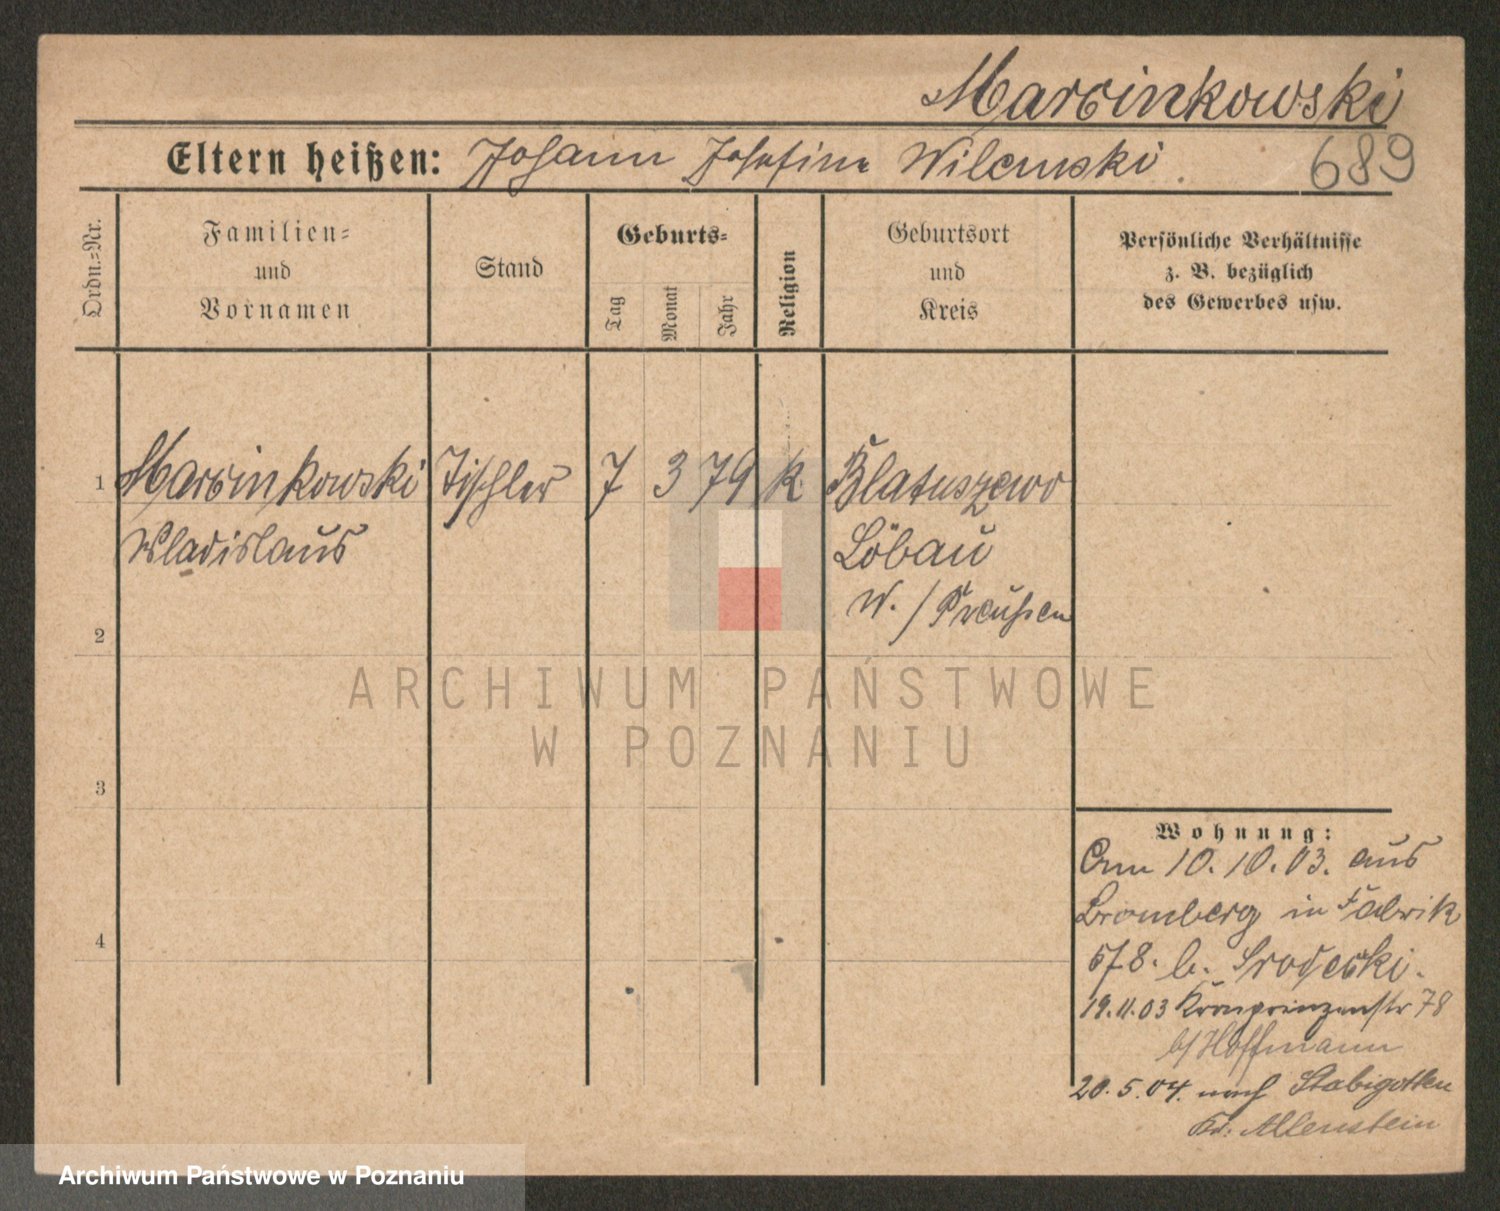 Marcinkowski
Eltern heißen: Johann Josefine Wilemski.
689
Ordn.=Nr.
Familien=
und
Vornamen
Stand
Geburts=
Tag
Monat
Jahr
Religion
Geburtsort
und
Kreis
Persönliche Verhältnisse
z. B. bezüglich
des Gewerbes usw.
1 Marcinkowski Tischler 7 3 79 k. Blatuszewo
Wladislaus Löbau
W./Preußen
2
ARCHIWUM PAŃSTWOWE
W POZNANIU
3
Wohnung:
Am 10.10.03. aus
Bromberg in Fabrik
4
578. b. Srodecki.
19.11.03 Kronprinzenstr 78
b/Hoffmann
20.5.04. nach Stabigotten
Kr. Allenstein
Archiwum Państwowe w Poznaniu